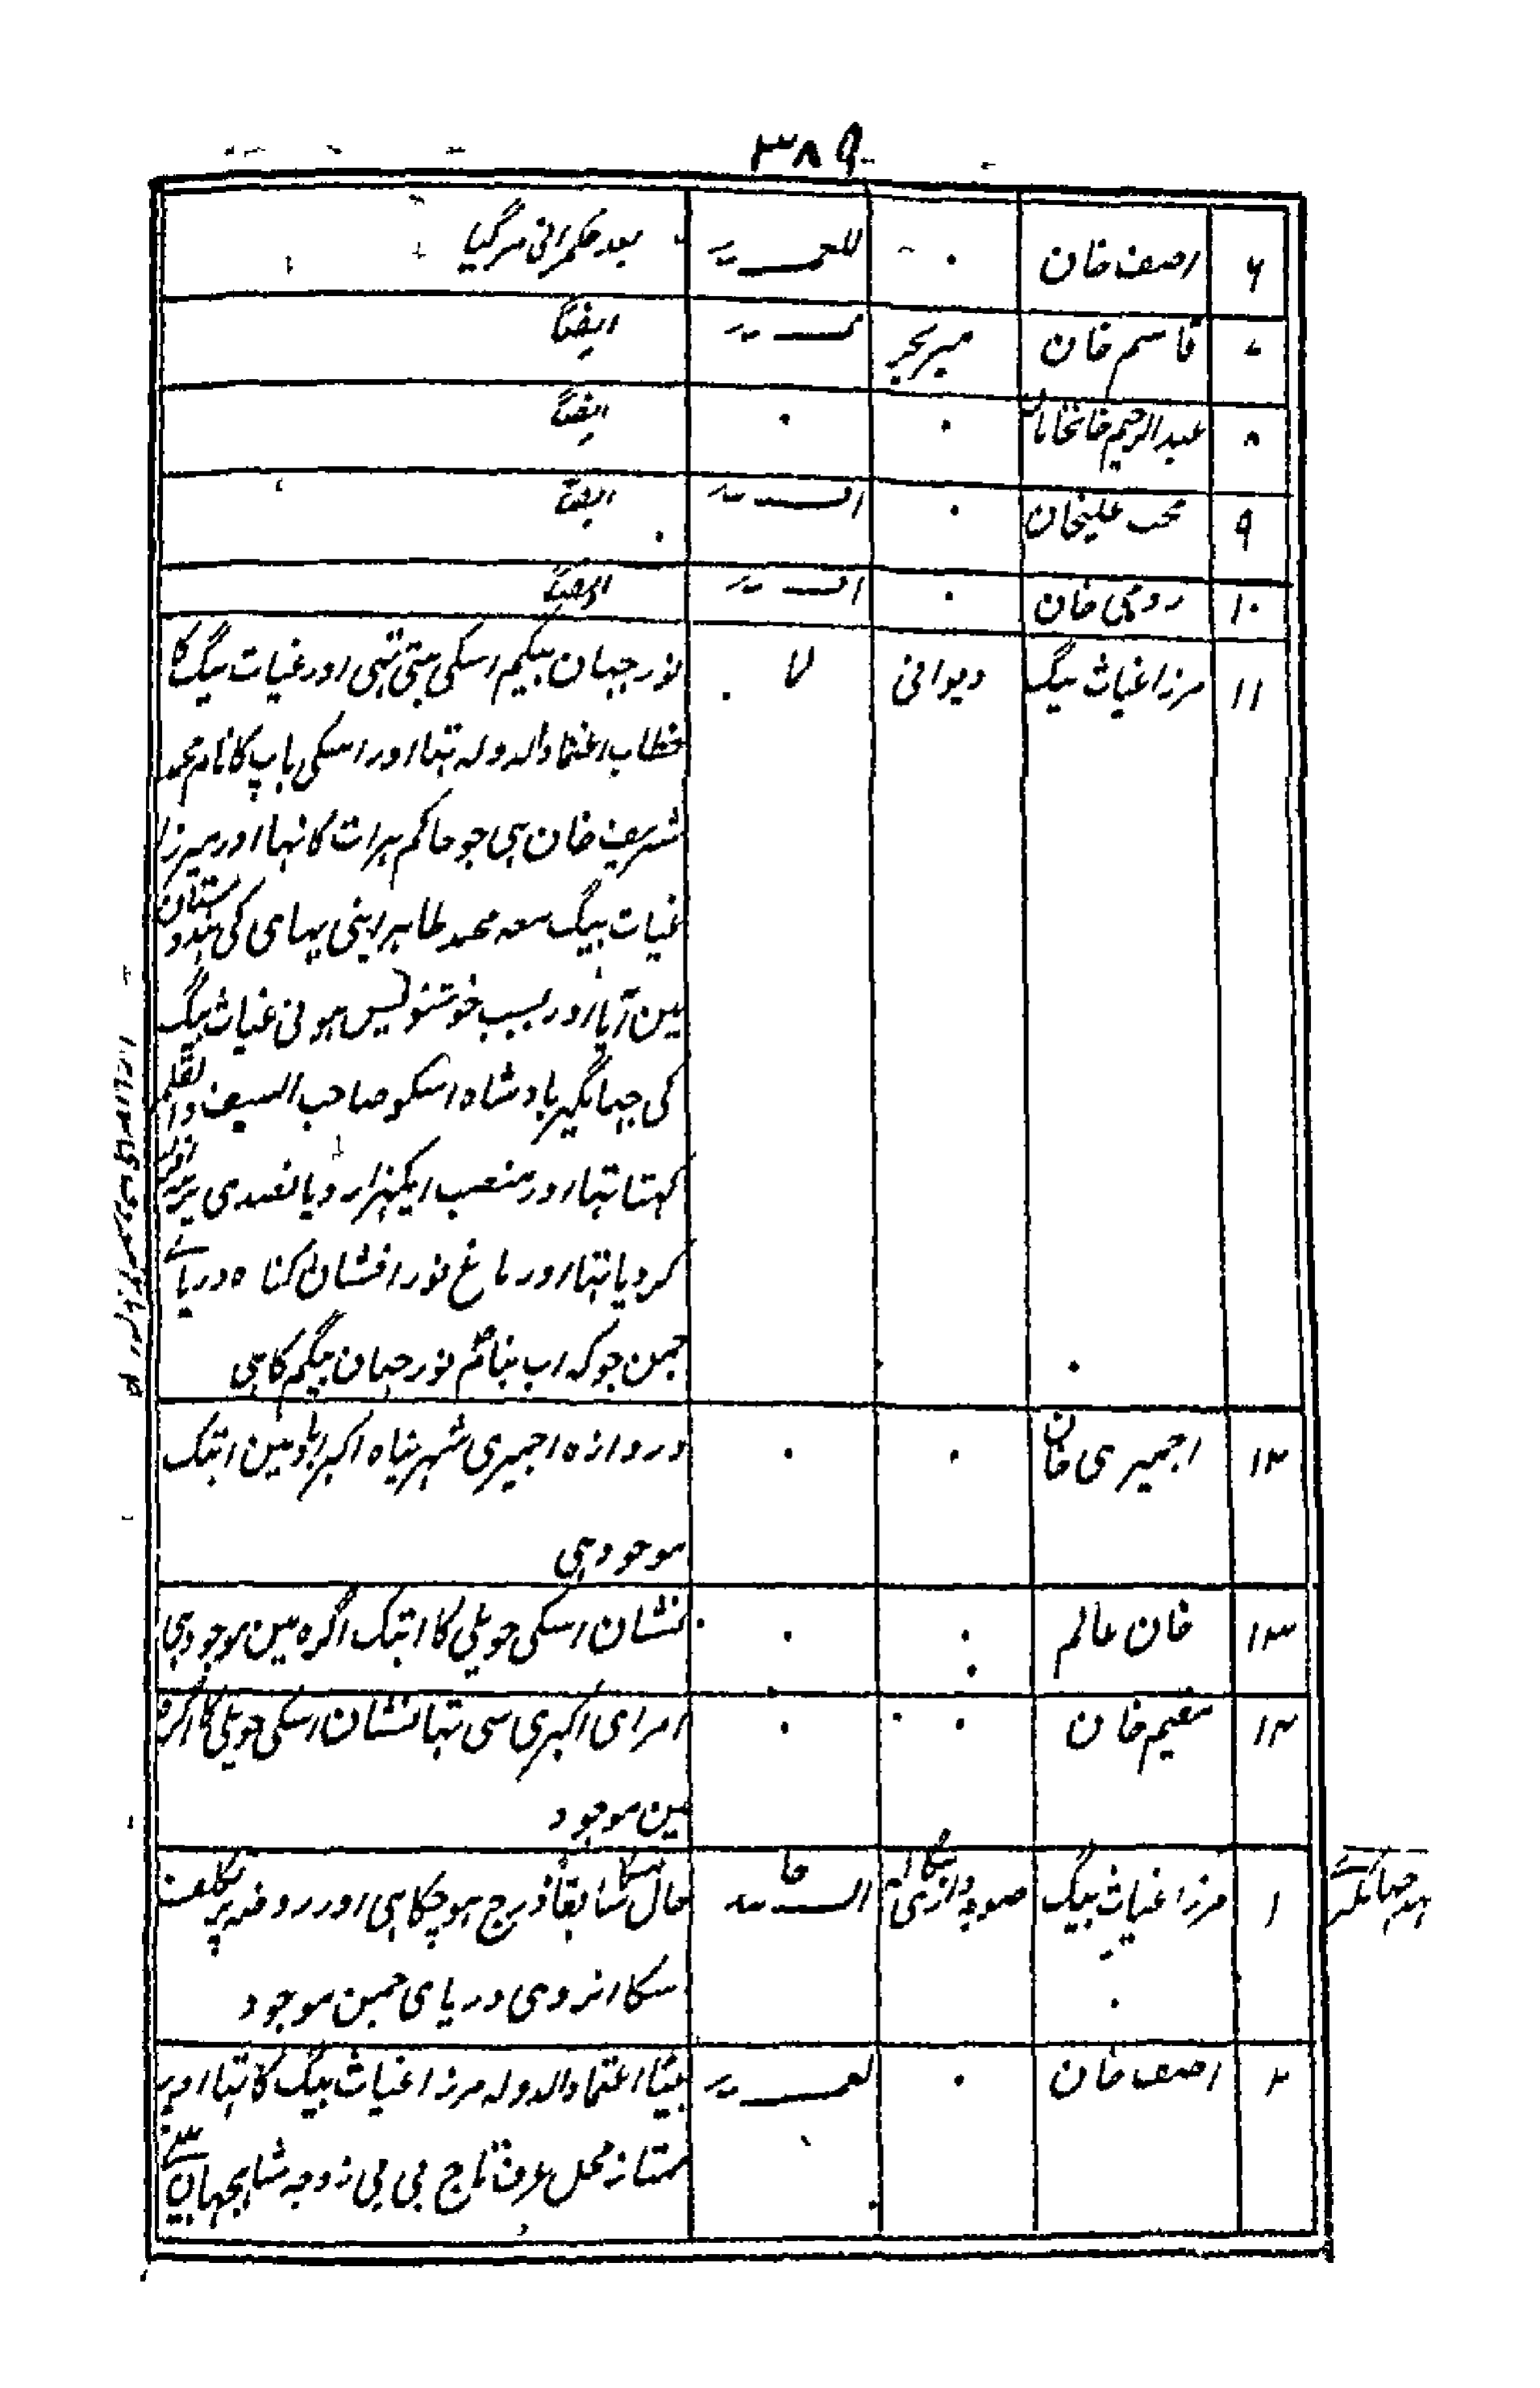 ۳۸۹
۶ اصف خان ۰ بعد حکمرانی مرگیا
۷ قاسم خان میربحر ایضًا
۸ عبدالرحیم خانخانان ۰ ۰ ایضًا
۹ محب علیخان ۰ ایضًا
۱۰ رومی خان ۰ ایضًا
۱۱ مرزا غیاث بیگ دیوانی نور جہان بیگم اسکی بیٹی تہی اور غیاث بیگ کا
خطاب اعتماد الدولہ تہا اور اسکی باپ کا نام محمد
شریف خان ہی جو حاکم ہرات کا تہا اور میرزا
غیاث بیگ معہ محمد طاہر اپنی بہای کی ہندوستان
مین آیا اور بسبب خوشنویس ہونی غیاث بیگ
کی جہانگیر بادشاہ اسکو صاحب السیف والقلم
کہتا تہا اور منصب ایکہزار و پانصدی پر
کردیا تہا اور باغ نور افشان کنارہ دریاے
جمن جو کہ اب بنام نور جہان بیگم کا ہی
۱۲ اجمیری خان ۰ ۰ دروازہ اجمیری شہر پناہ اکبراباد مین ابتک
موجود ہی
۱۳ خان عالم ۰ ۰ نشان اسکی حویلی کا ابتک اگرہ مین موجود ہی
۱۴ مقیم خان ۰ ۰ امرای اکبری سی تہا نشان اسکی حویلی کا اگرہ
مین موجود
۱ مرزا غیاث بیگ حال اسکا سابقًا درج ہوچکا ہی اور روضہ پر تکلف
اسکا انروی دریای جمن موجود
۲ اصف خان ۰ بیٹا اعتماد الدولہ مرزا غیاث بیگ کا تہا اور
ممتاز محل عرف تاج بی بی زوجہ شاہجہان